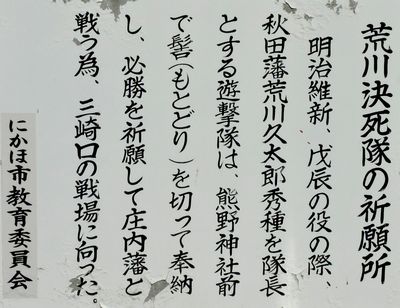 荒川決死隊の祈願所
明治維新、戊辰の役の際、
秋田藩荒川久太郎秀種を隊長
とする遊撃隊は、熊野神社前
で髻(もとどり)を切って奉納
し、必勝を祈願して庄内藩と
戦う為、三崎口の戦場に向った。
にかほ市教育委員会